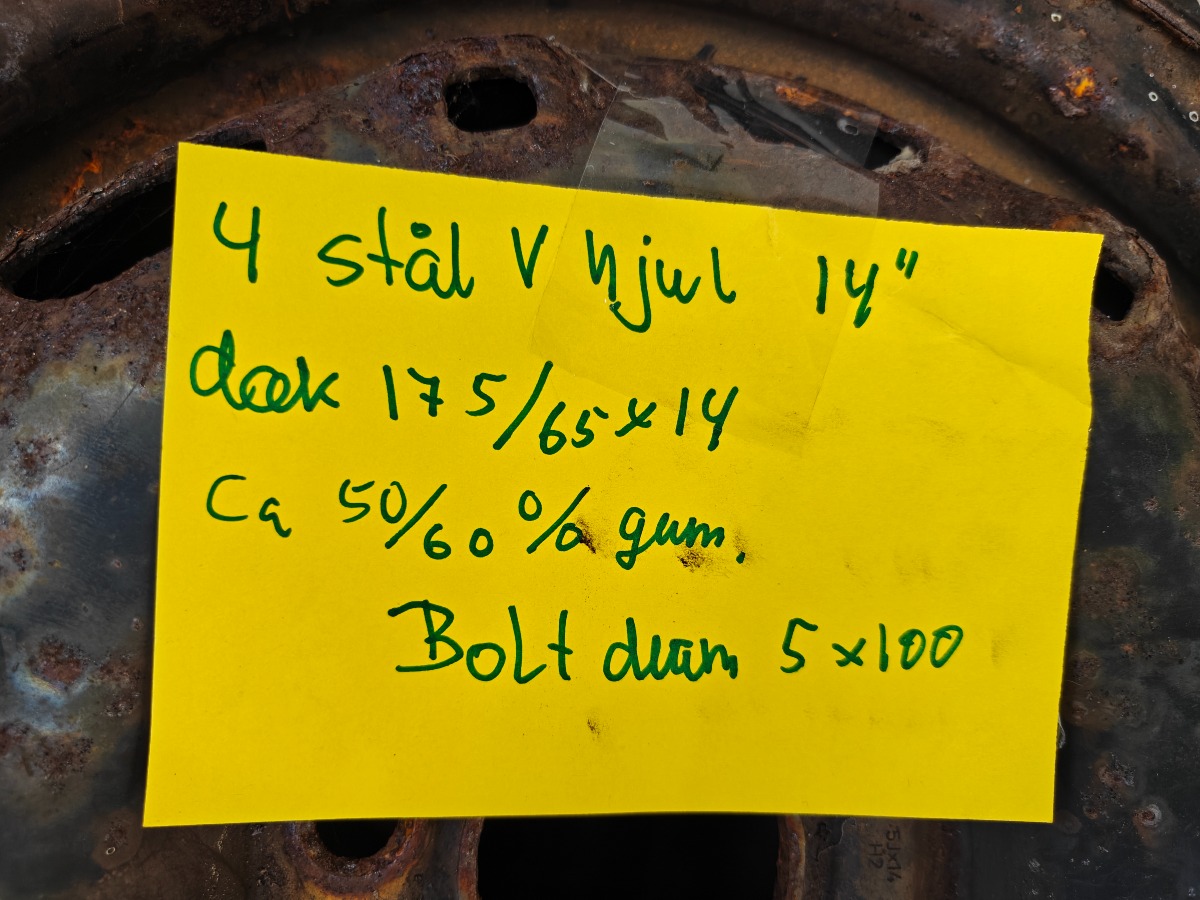 4 stål V hjul 14"
dæk 175/65x14
Ca 50/60 % gum.
Bolt diam 5x100
5JX14
H2